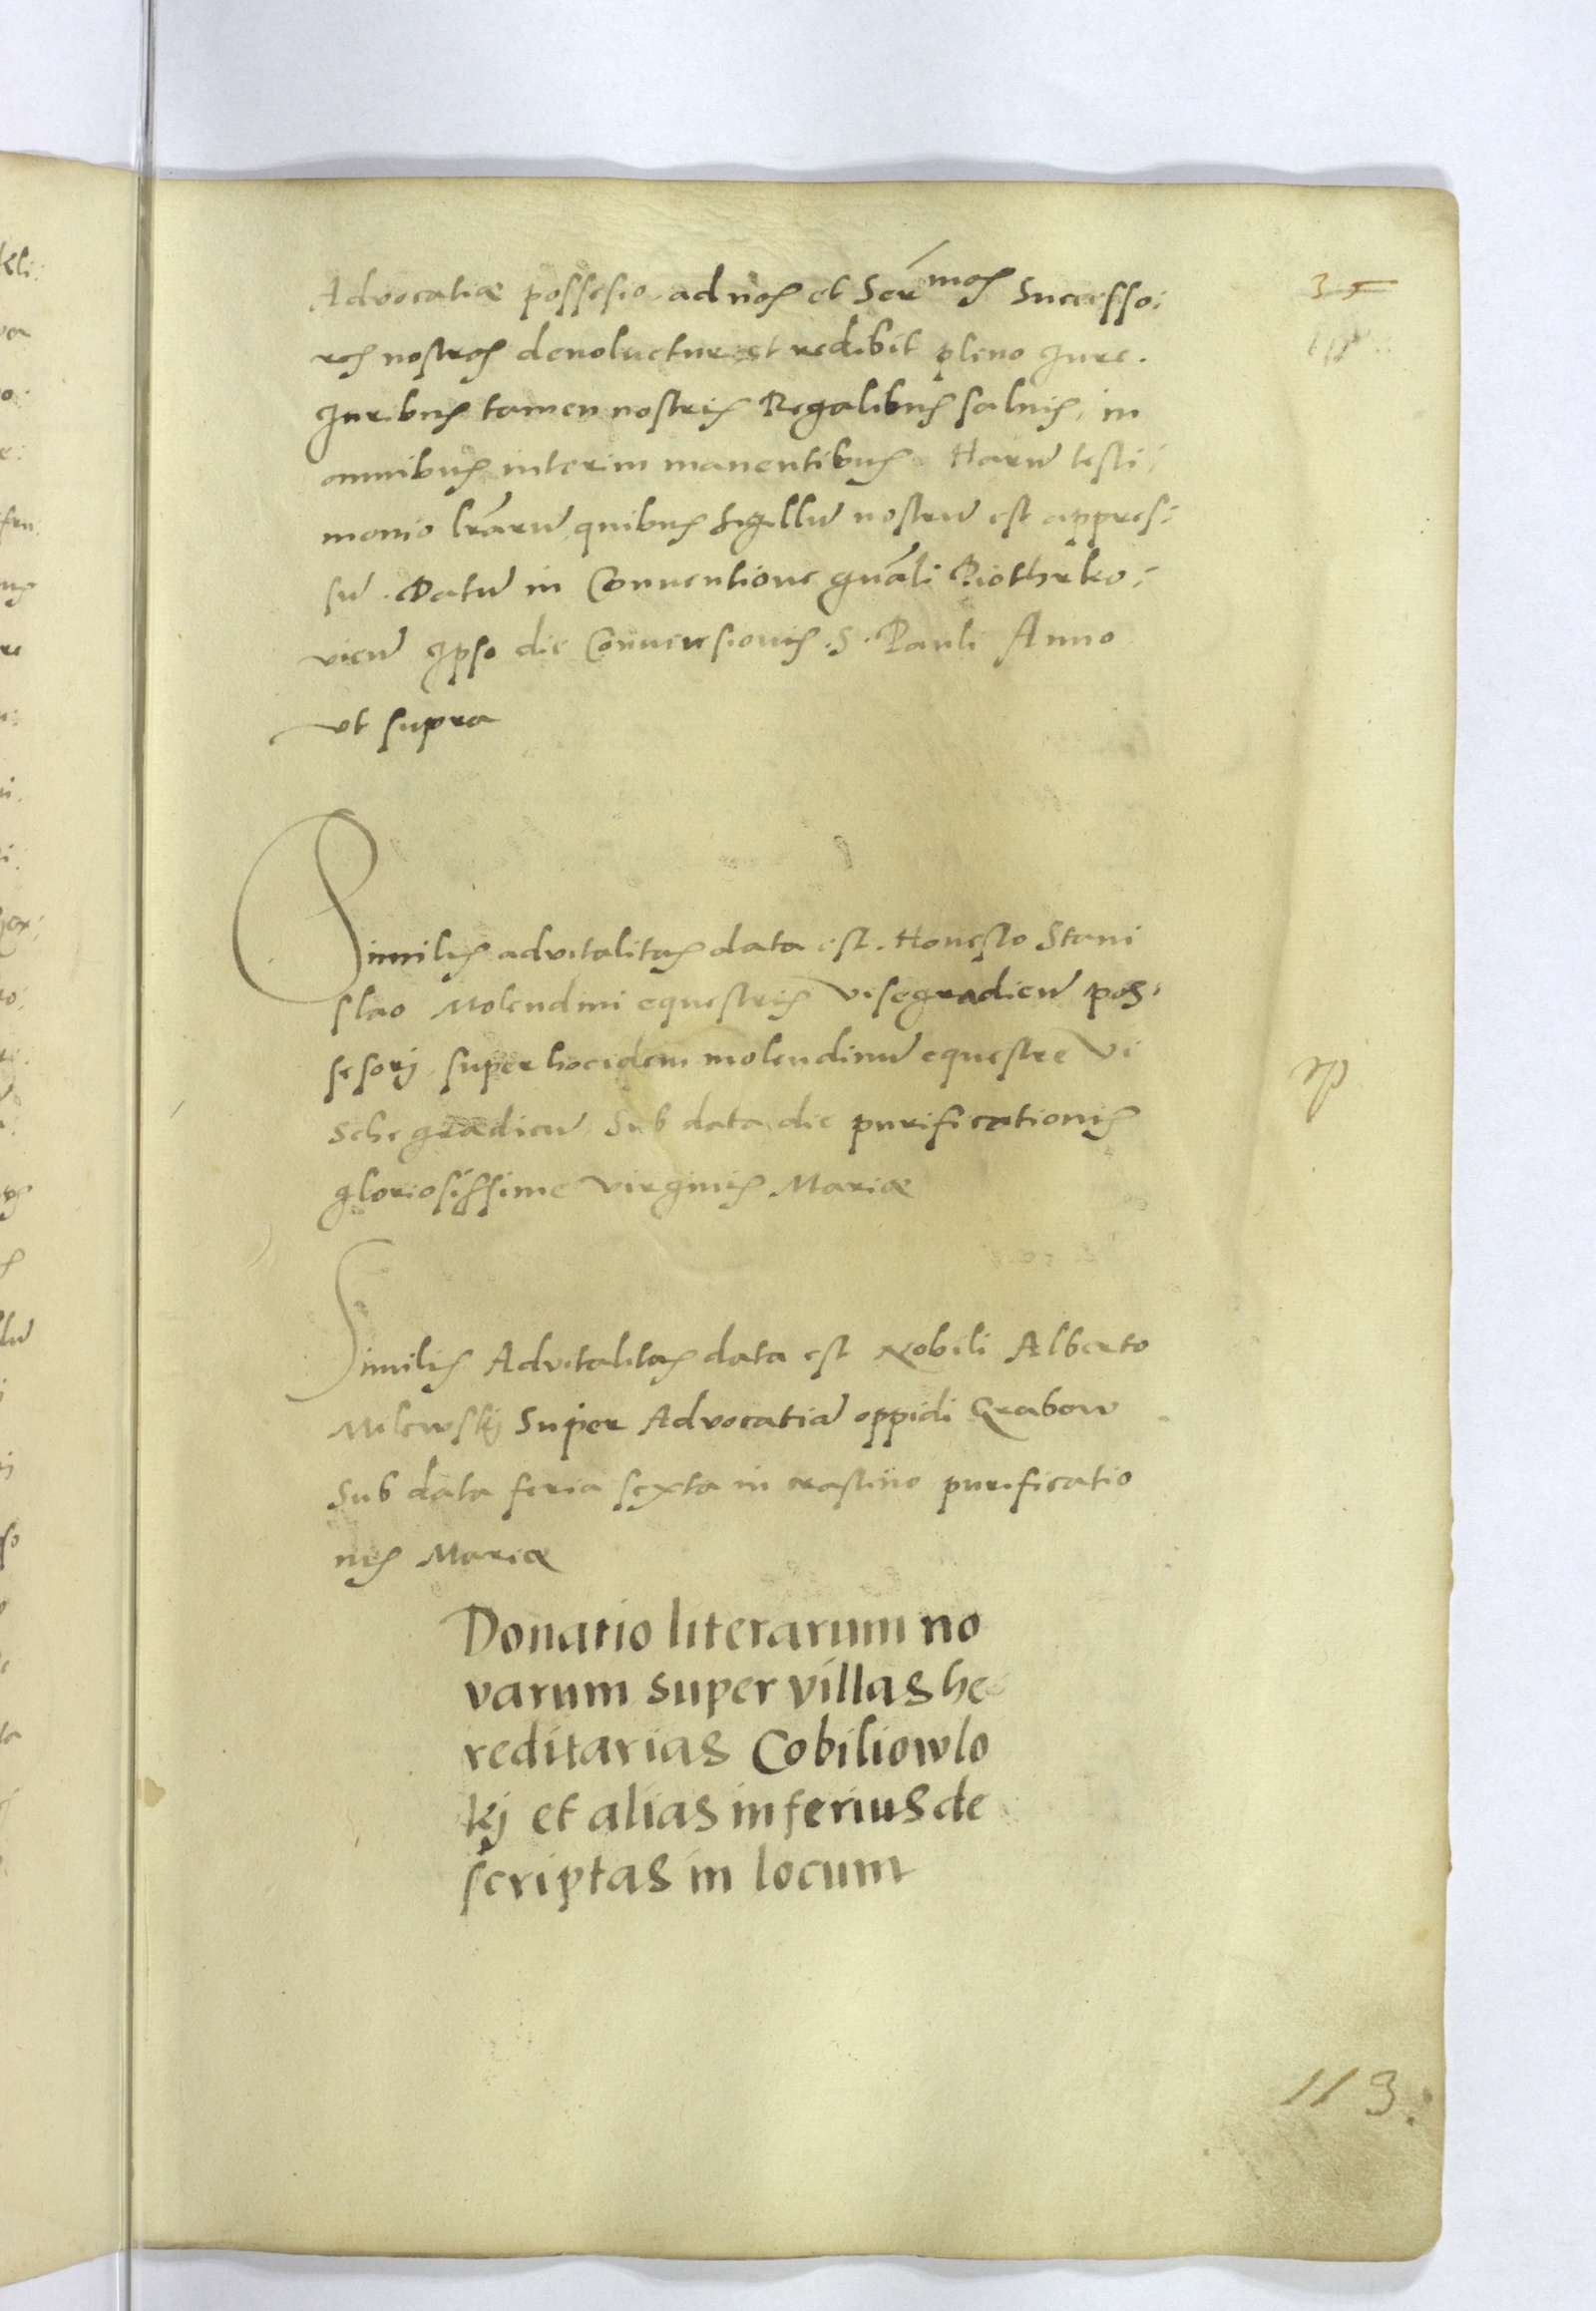 Advocatiæ possesio ad nos et Ser mos Successo:
res nostros devoluetur et redibit pleno Jure.
Juribus tamen nostris Regalibus saluis, in
omnibus interim manentibus. Harū testi:
monio lrārū, quibus Sigillū nostrū est appres:
sū. Datū in Conuentione gnāli Piothrko:
vien̄ Ipso die Conuersionis .S. Pauli Anno
vt supra
Similis advitalitas data est. Honesto Stani
slao Molendini equestris Visegradien̄ pos:
sesorj super hocidem molendinū equestre Vi
schegradien̄ Sub data die purificationis
gloriosissime Virginis Mariæ
Similis Advitalitas data est Nobili Alberto
Milewskj Super Advocatiā oppidi Grabow
Sub data feria sexta in crastino purificatio
nis Mariæ
Donatio literarum no
varum super villas he
reditarias Cobiliowlo
kj et alias inferius de
scriptas in locum
35
113.